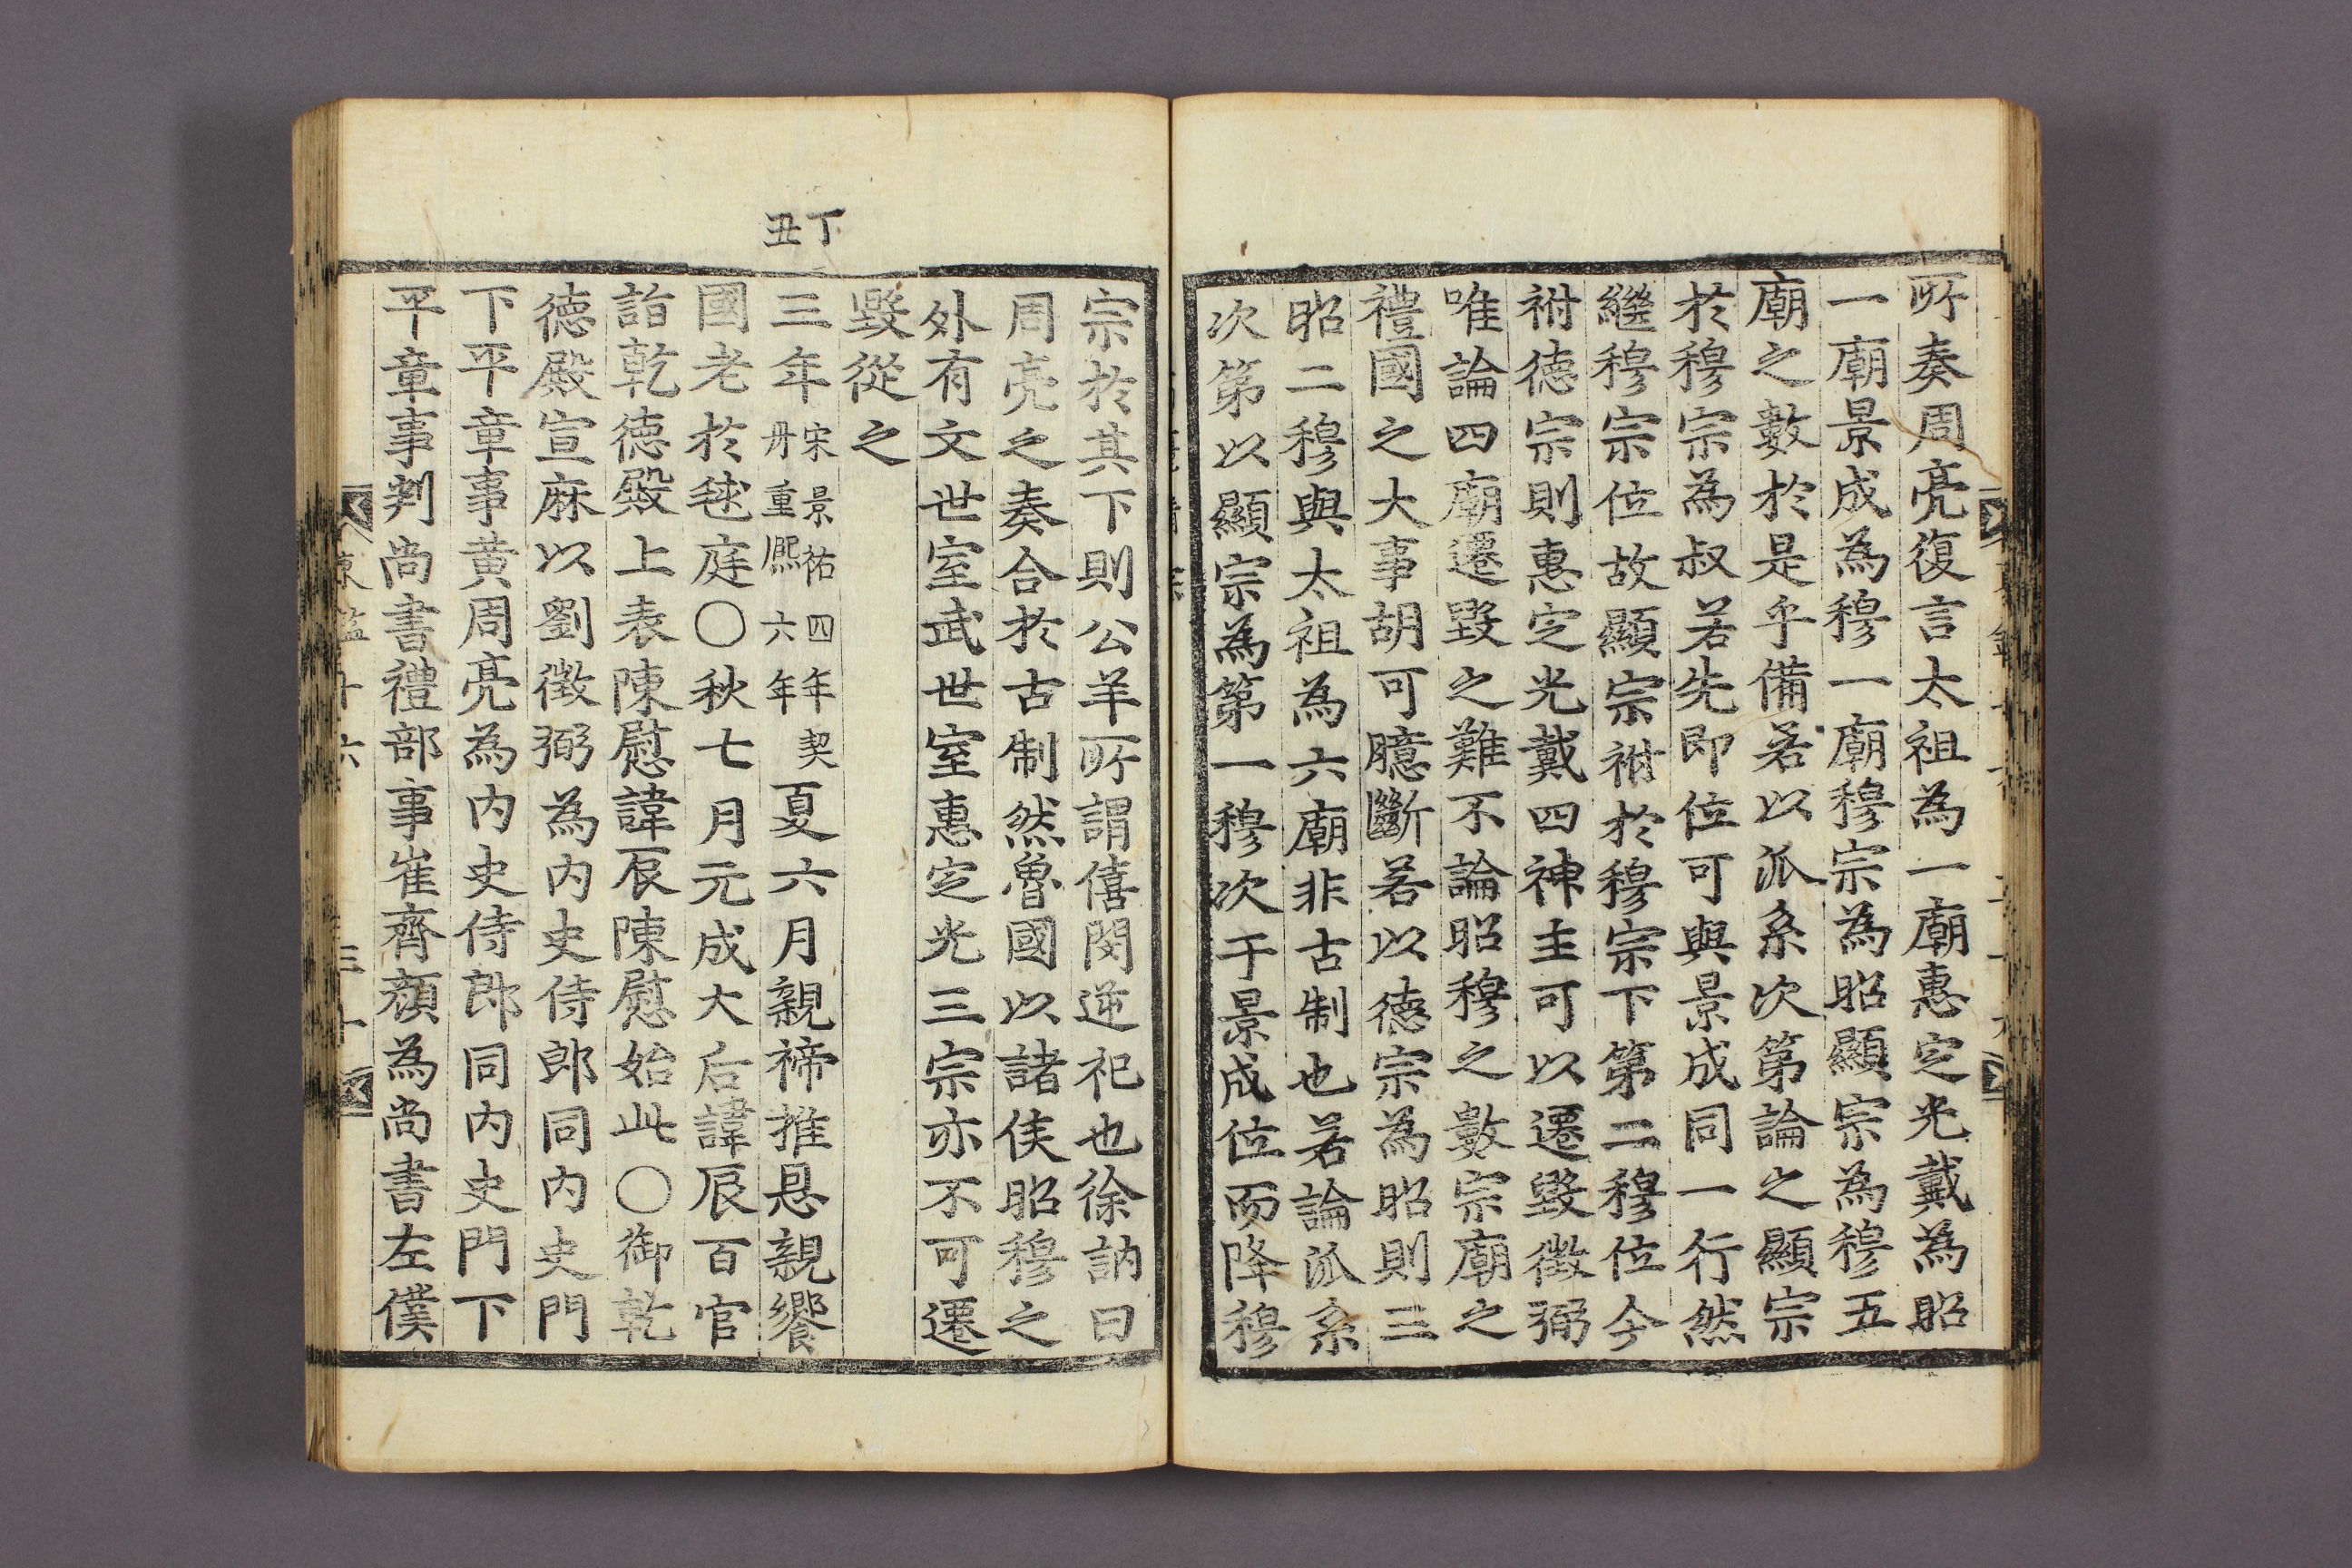 所奏周亮復言太祖為一廟惠定光戴為昭
一廟景成為穆一廟穆宗為昭顯宗為穆五
廟之數於是乎備若以派系次第論之顯宗
於穆宗為叔若先即位可與景成同一行然
繼穆宗位故顯宗祔於穆宗下第二穆位今
祔德宗則惠定光戴四神主可以遷毀徵弼
唯論四廟遷毀之難不論昭穆之數宗廟之
禮國之大事胡可臆斷若以德宗為昭則三
昭二穆與太祖為六廟非古制也若論派系
次第以顯宗為第一穆次于景成位而降穆
宗於其下則公羊所謂僖閔逆祀也徐訥曰
周亮之奏合於古制然魯國以諸侯昭穆之
外有文世室武世室惠定光三宗亦不可遷
毀從之
丁丑
三年宋景祐四年契丹重熙六年夏六月親禘推恩親饗
國老於毬庭○秋七月元成大后諱辰百官
詣乾德殿上表陳慰諱辰陳慰始此○御乾
德殿宣麻以劉徵弼為內史侍郎同內史門
下平章事黃周亮為內史侍郎同內史門下
平章事判尚書禮部事崔齊顏為尚書左僕
東鑑十六 三十